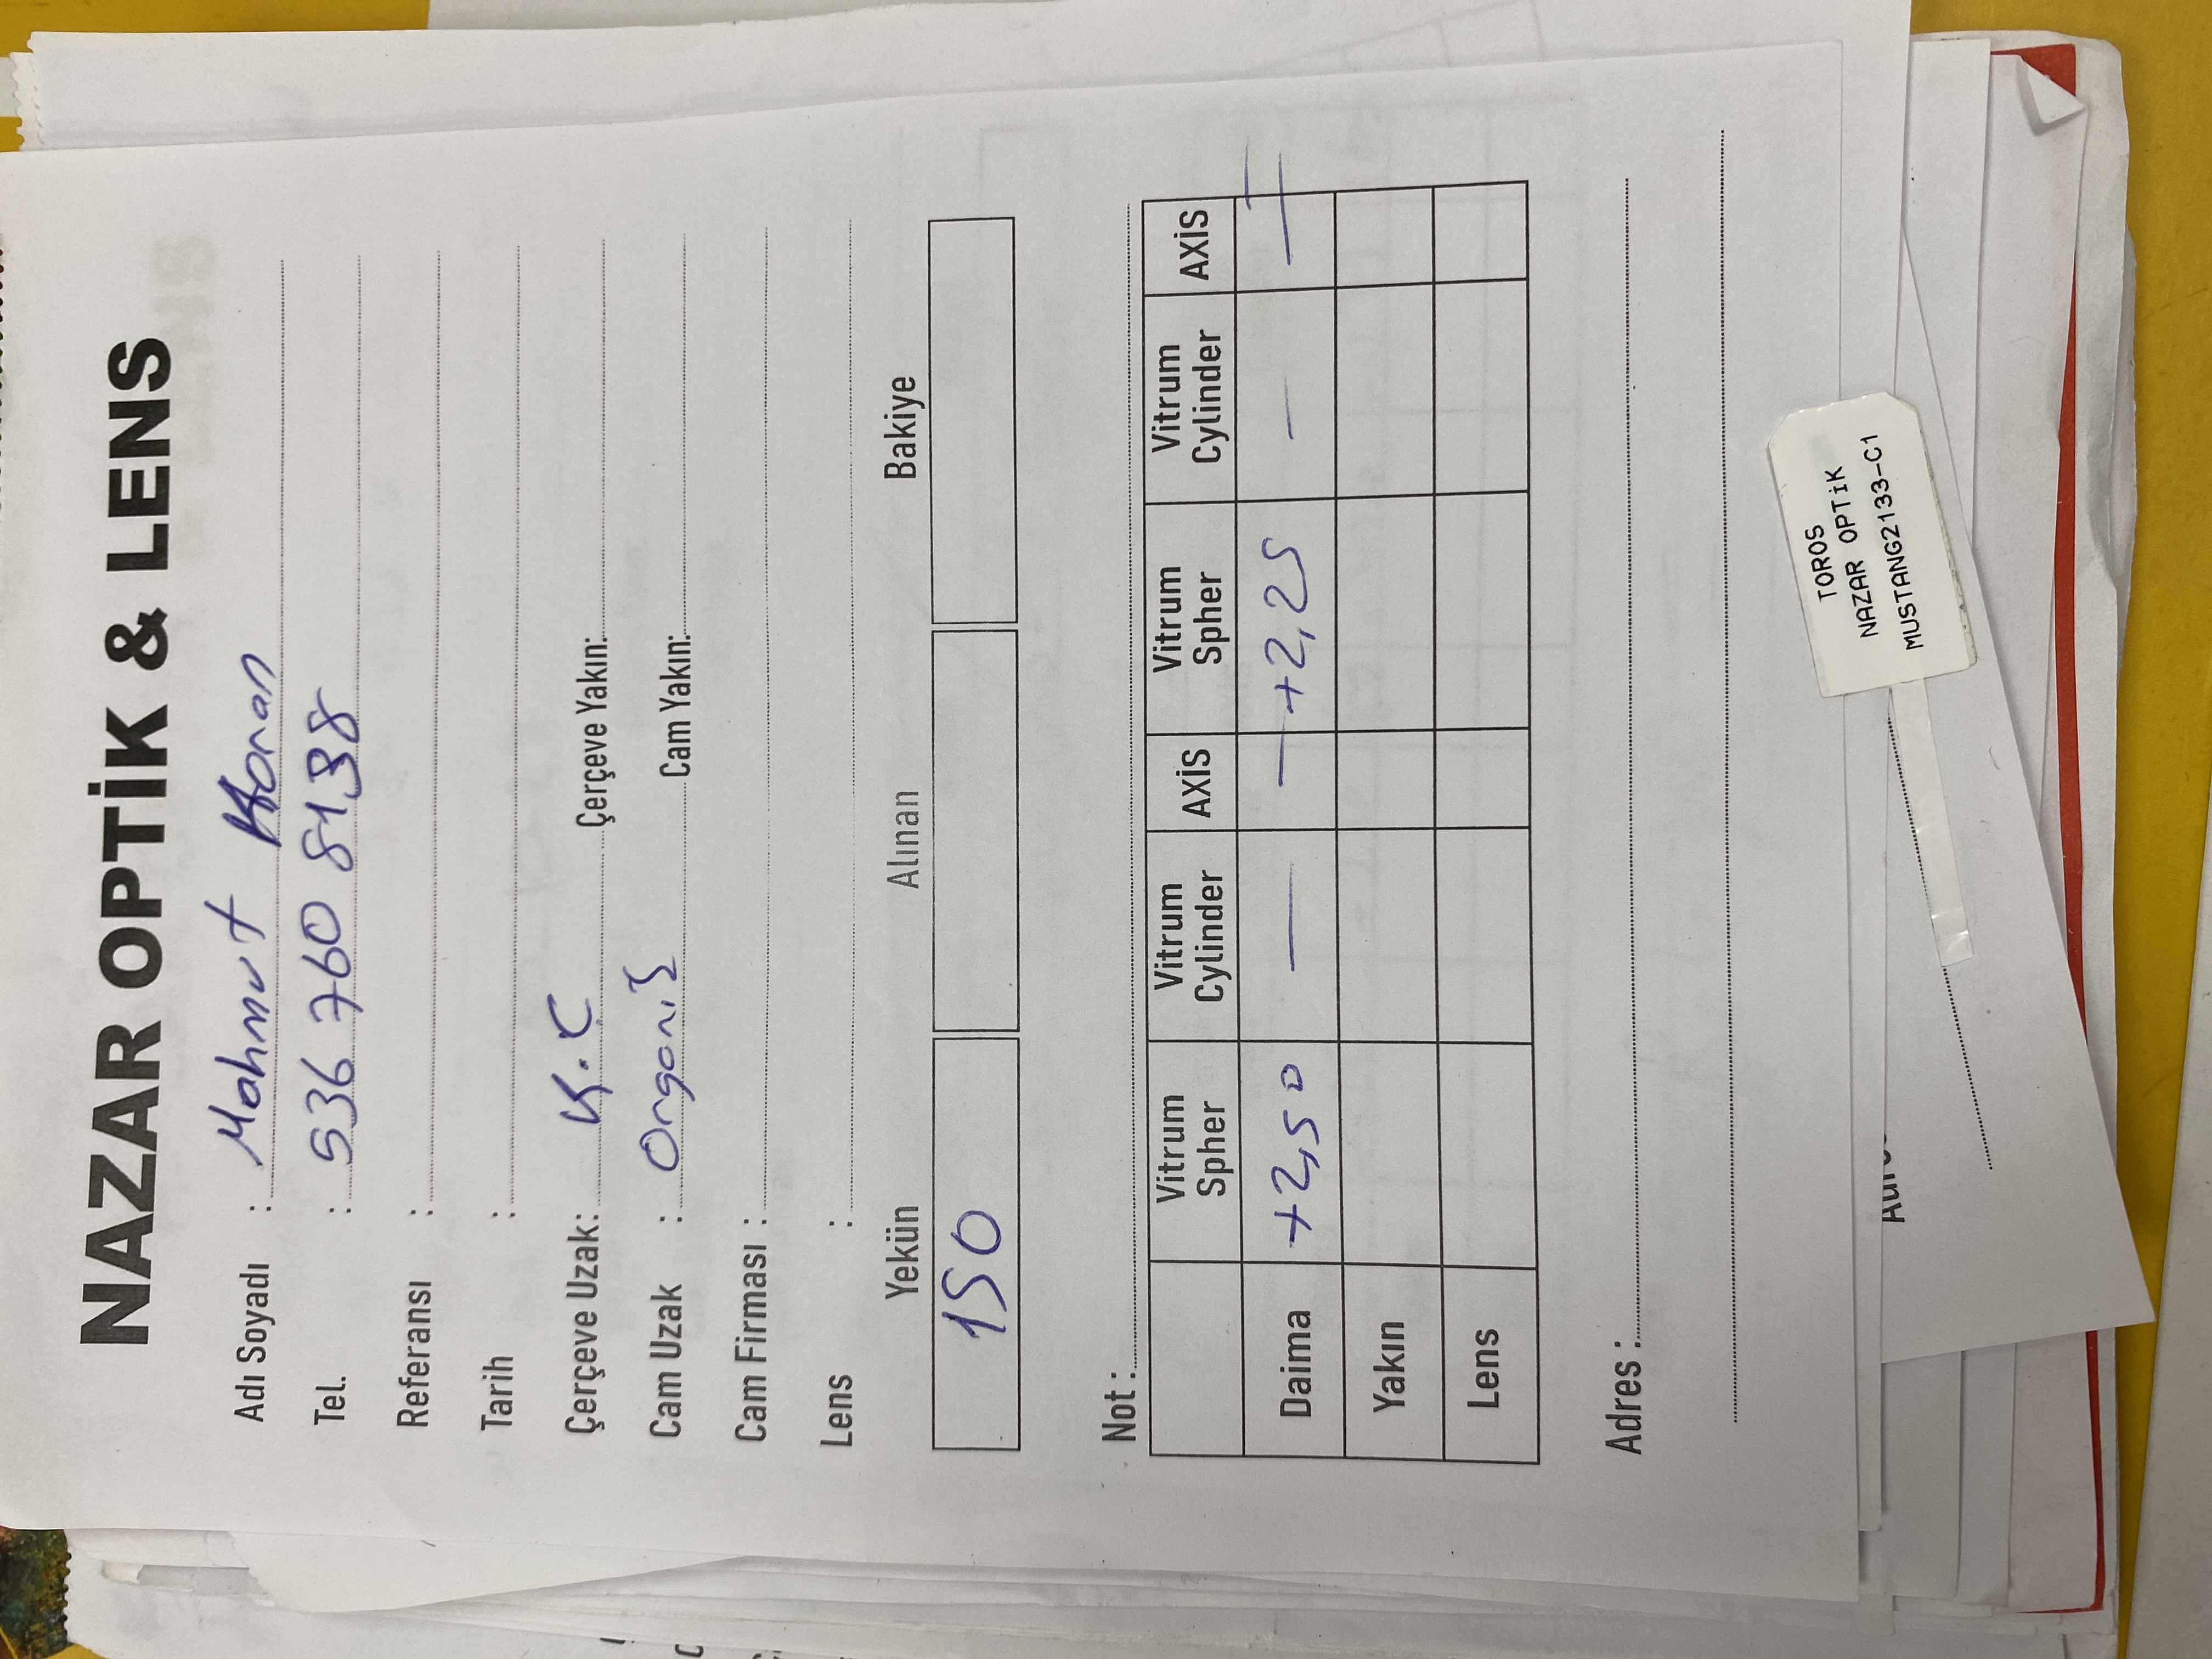 NAZAR OPTİK & LENS
Adı Soyadı : Mahmut
Tel. : 536 760 8138
Referansı :
Tarih :
Çerçeve Uzak: K.Ç Çerçeve Yakın:
Cam Uzak : Organik Cam Yakın:
Cam Firması :
Lens :
Yekün Alınan Bakiye
150
Not :
Vitrum Spher Vitrum Cylinder AXİS Vitrum Spher Vitrum Cylinder AXİS
Daima +2,50 — — +2,25 — —
Yakın
Lens
Adres :
TOROS
NAZAR OPTİK
MUSTANG2133-C1